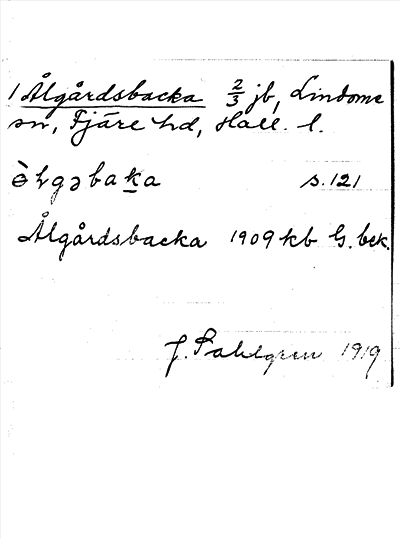 1 Ålgårdsbacka 2/3 jb, Lindome
sn, Fjäre hd, Hall. l.
s. 121
Ålgårdsbacka 1909 kb G. bek.
J. Sahlgren 1919